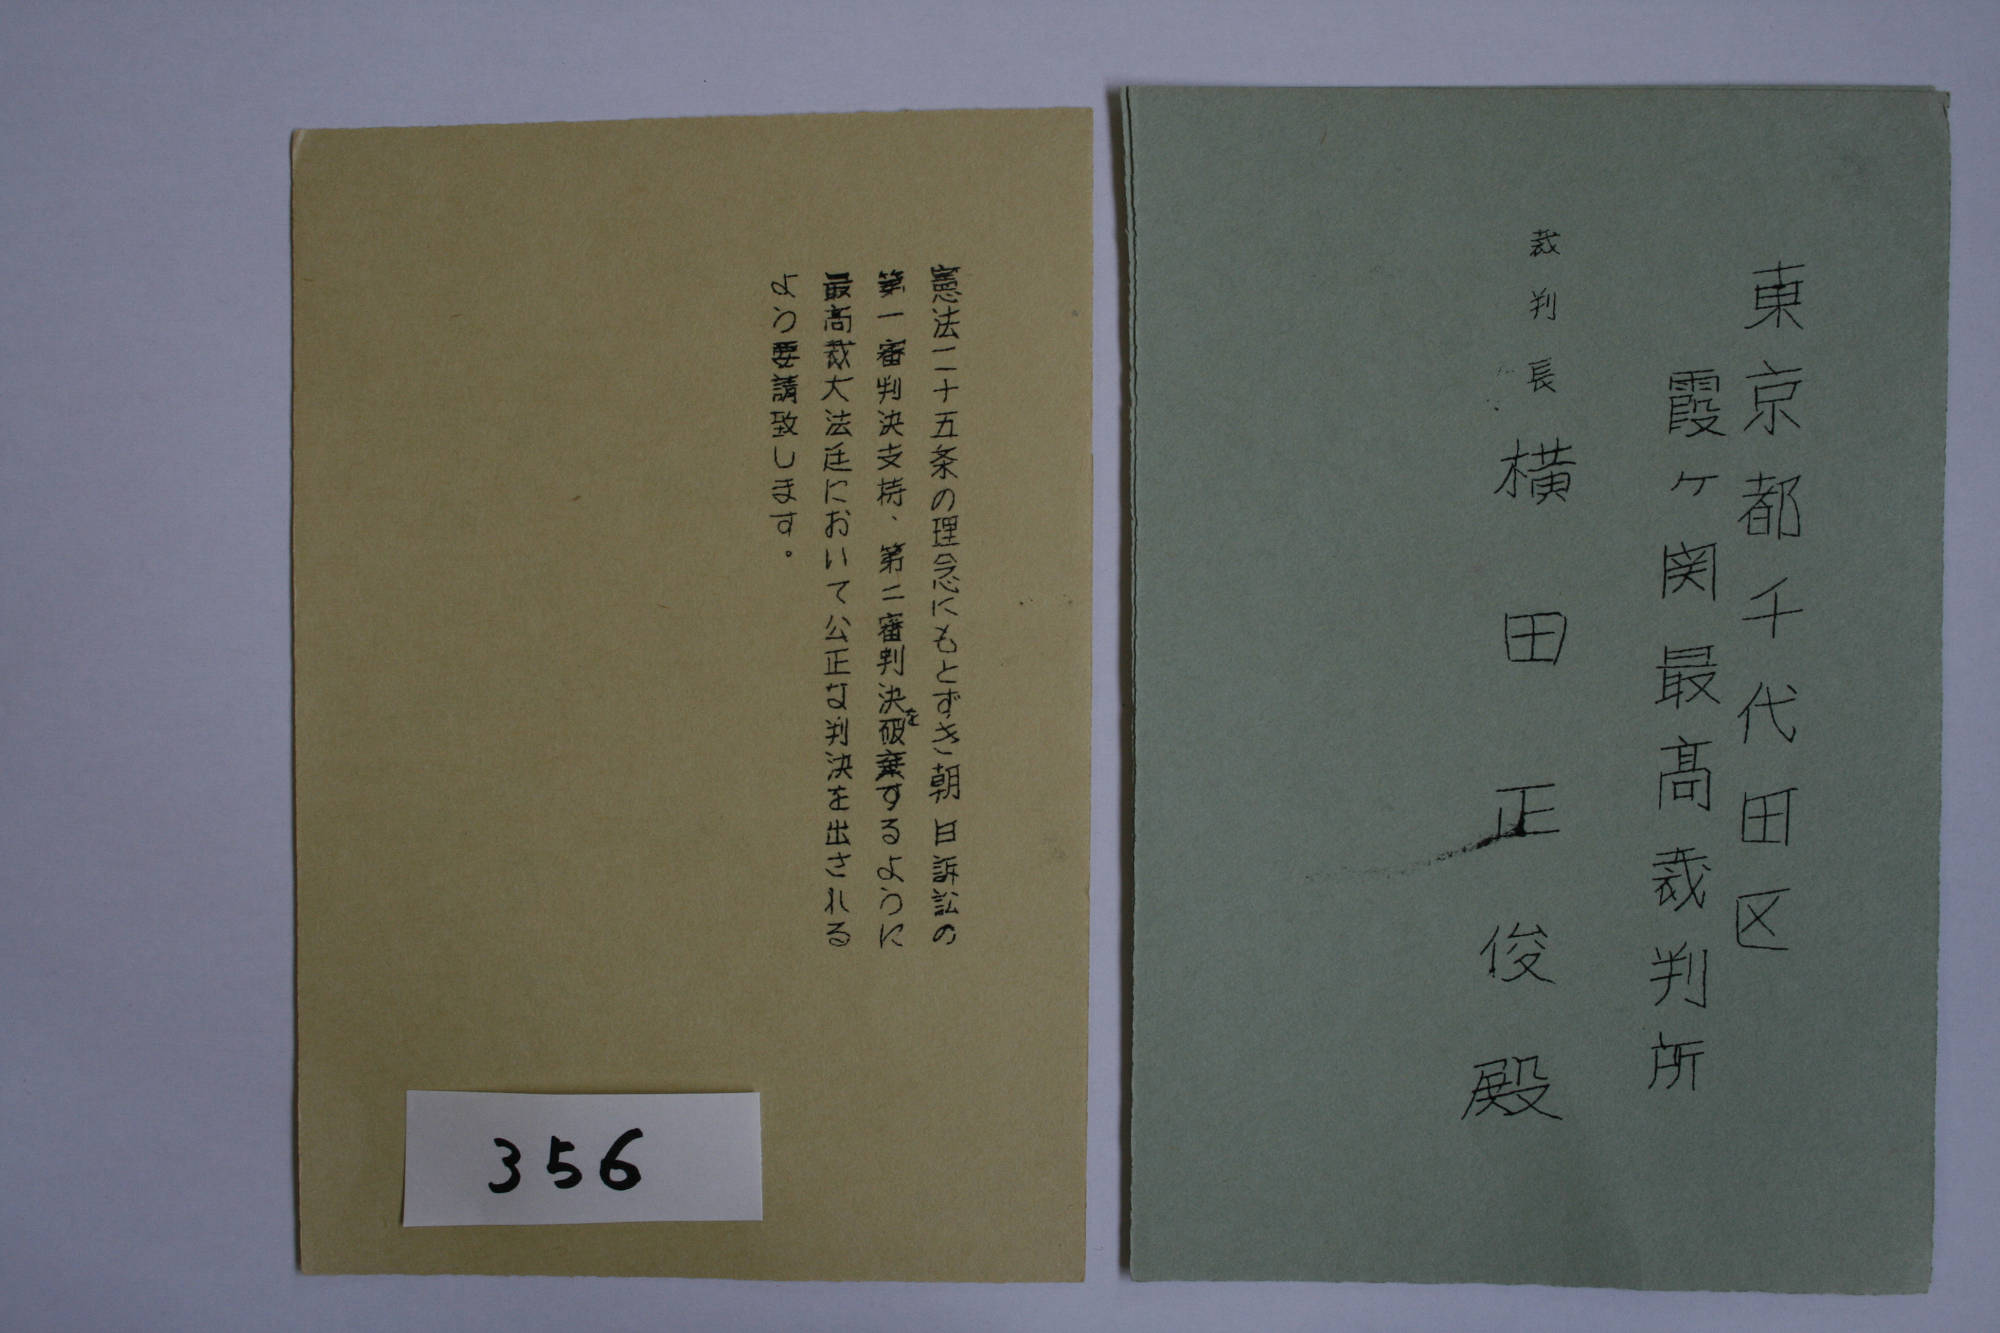 東京都千代田区
霞ヶ関最高裁判所
裁判長 横田正俊殿
憲法二十五条の理念にもとずき朝日訴訟の
第一審判決支持、第二審判決を破棄するように
最高裁大法廷において公正な判決を出される
よう要請致します。
356